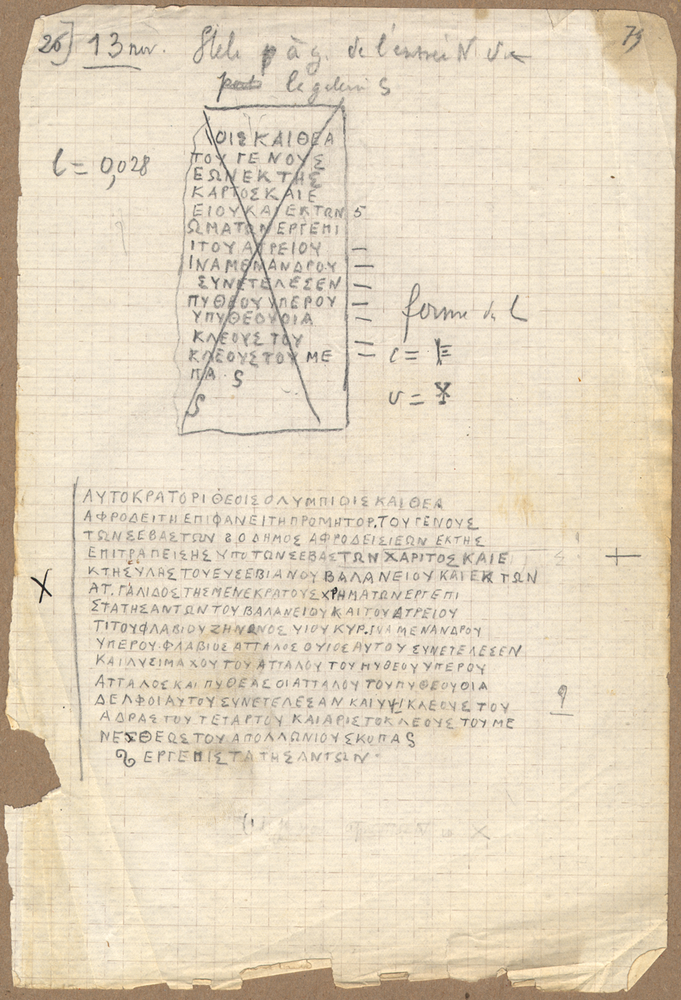 26] 13 nov. Stele p à g. de l'entrée N
le galerie S
l = 0,028
ΟΙΣ ΚΑΙ ΘΕΑ
ΤΟΥ ΓΕΝΟΥΣ
ΕΩΝ ΕΚΤΗΣ
ΚΑΡΤΟΣ ΚΑΙ Ε
ΕΙΟΥ ΚΑΙ ΕΚ ΤΩΝ 5
ΩΜΑΤΩΝ ΕΡΓΕΠΙ
ΙΤΟΥ ΑΤΡΕΙΟΥ
ΙΝΑ ΜΕΝΑΝΔΡΟΥ
ΣΥΝΕΤΕΛΕΣΕΝ
ΠΥΘΕΟΥ ΥΠΕΡΟΥ
ΥΠΥΘΕΟΥΘΙΑ
ΚΛΕΟΥΣ ΤΟΥ
ΚΛΕΟΥΣ ΤΟΥ ΜΕ
ΠΑ S
S
forme du
75
ΑΥΤΟΚΡΑΤΟΡΙ ΘΕΟΙΣ ΟΛΥΜΠΙΟΙΣ ΚΑΙ ΘΕΑ
ΑΦΡΟΔΕΙΤΗ ΕΠΙΦΑΝΕΙ ΤΗ ΠΡΟΜΗΤΟΡ. ΤΟΥ ΓΕΝΟΥΣ
ΤΩΝ ΣΕΒΑΣΤΩΝ Ο ΔΗΜΟΣ ΑΦΡΟΔΕΙΣΙΕΩΝ ΕΚΤΗΣ
ΕΠΙΤΡΑΠΕΙΣΗΣ ΥΠΟ ΤΩΝ ΣΕΒΑΣΤΩΝ ΧΑΡΙΤΟΣ ΚΑΙ Ε
ΚΤΗΣ ΥΛΗΣ ΤΟΥ ΕΥΣΕΒΙΑΝΟΥ ΒΑΛΑΝΕΙΟΥ ΚΑΙ ΕΚ ΤΩΝ
ΑΤ. ΓΑΛΙΔΟΣ ΤΗΣ ΜΕΝΕΚΡΑΤΟΥΣ ΧΡΗΜΑΤΩΝ ΕΡΓΕΠΙ
ΣΤΑΤΗΣΑΝΤΩΝ ΤΟΥ ΒΑΛΑΝΕΙΟΥ ΚΑΙ ΤΟΥ ΑΤΡΕΙΟΥ
ΤΙΤΟΥ ΦΛΑΒΙΟΥ ΖΗΝΩΝΟΣ ΥΙΟΥ ΚΥΡ. ΙΝΑ ΜΕΝΑΝΔΡΟΥ
ΥΠΕΡΟΥ ΦΛΑΒΙΟΣ ΑΤΤΑΛΟΣ Ο ΥΙΟΣ ΑΥΤΟΥ ΣΥΝΕΤΕΛΕΣΕΝ
ΚΑΙ ΛΥΣΙΜΑΧΟΥ ΤΟΥ ΑΤΤΑΛΟΥ ΤΟΥ ΠΥΘΕΟΥ ΥΠΕΡΟΥ
ΑΤΤΑΛΟΣ ΚΑΙ ΠΥΘΕΑΣ ΟΙ ΑΤΤΑΛΟΥ ΤΟΥ ΠΥΘΕΟΥ ΘΙΑ
ΔΕΛΦΟΙ ΑΥΤΟΥ ΣΥΝΕΤΕΛΕΣΑΝ ΚΑΙ ΥΨΙΚΛΕΟΥΣ ΤΟΥ
ΑΔΡΑΣΤΟΥ ΤΕΤΑΡΤΟΥ ΚΑΙ ΑΡΙΣΤΟΚΛΕΟΥΣ ΤΟΥ ΜΕ
ΝΕΣΘΕΩΣ ΤΟΥ ΑΠΟΛΛΩΝΙΟΥ ΣΚΟΠΑ S
ΕΡΓΕΠΙΣΤΑΤΗΣΑΝΤΩΝ